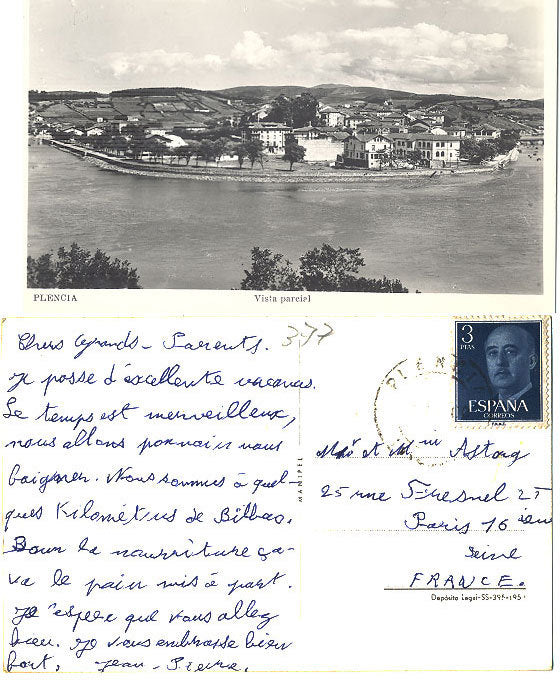 PLENCIA
Vista parcial
Chers Grands-Parents.
377
Je passe d'excellente vacances.
Le temps est merveilleux,
nous allons pouvoir nous
baigner. Nous sommes à quel-
ques Kilomètres de Bilbao.
Pour la nourriture ça-
va le pain mis à part.
J'espère que vous allez
bien. Je vous embrasse bien
fort, Jean-Pierre.
MANIPEL
PLEN
3
PTAS
ESPAÑA
CORREOS
Mr et Mme Astorg
25 rue Fresnel
Paris 16 ième
Seine
FRANCE.
Depósito Legal-SS-395-195